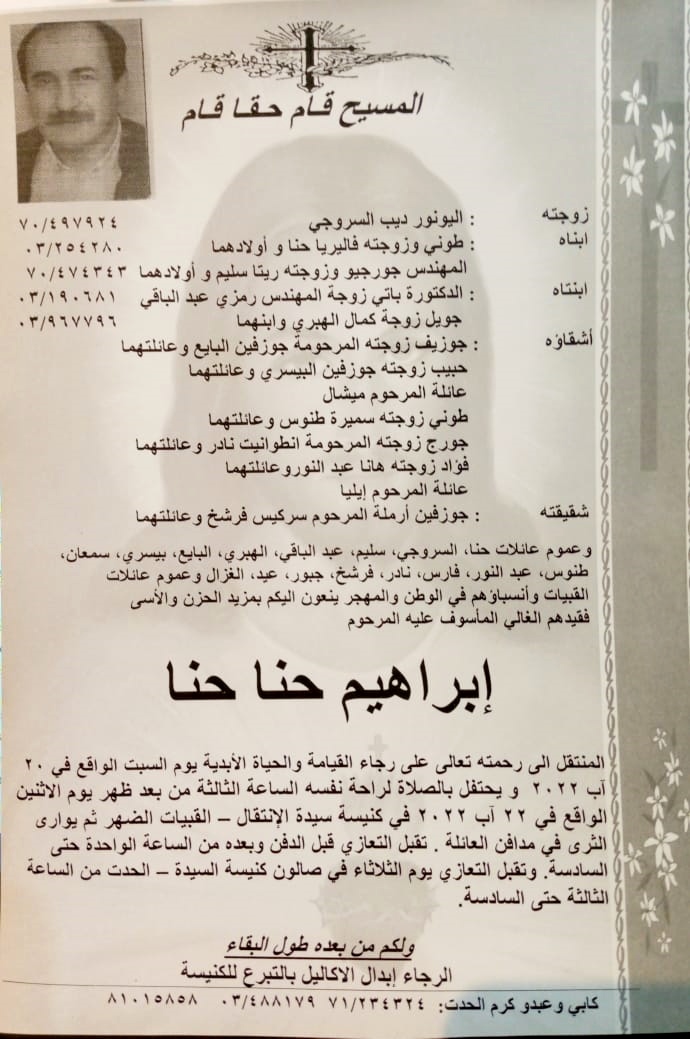 المسيح قام حقا قام
زوجته : اليونور ديب السروجي ٧٠/٤٩٧٩٢٤
ابناه : طوني وزوجته فاليريا حنا و أولادهما ٠٣/٢٥٤٢٨٠
المهندس جورجيو وزوجته ريتا سليم و أولادهما ٧٠/٤٧٤٣٤٣
ابنتاه : الدكتورة باتي زوجة المهندس رمزي عبد الباقي ٠٣/١٩٠٦٨١
جويل زوجة كمال الهبري وابنهما ٠٣/٩٦٧٧٩٦
أشقاؤه : جوزيف زوجته المرحومة جوزفين البايع وعائلتهما
حبيب زوجته جوزفين البيسري وعائلتهما
عائلة المرحوم ميشال
طوني زوجته سميرة طنوس وعائلتهما
جورج زوجته المرحومة انطوانيت نادر وعائلتهما
فؤاد زوجته هانا عبد النوروعائلتهما
عائلة المرحوم إيليا
شقيقته : جوزفين أرملة المرحوم سركيس فرشخ وعائلتهما
وعموم عائلات حنا، السروجي، سليم، عبد الباقي، الهبري، البايع، بيسري، سمعان،
طنوس، عبد النور، فارس، نادر، فرشخ، جبور، عيد، الغزال وعموم عائلات
القبيات وأنسباؤهم في الوطن والمهجر ينعون اليكم بمزيد الحزن والأسى
فقيدهم الغالي المأسوف عليه المرحوم
إبراهيم حنا حنا
المنتقل الى رحمته تعالى على رجاء القيامة والحياة الأبدية يوم السبت الواقع في ٢٠
آب ٢٠٢٢ و يحتفل بالصلاة لراحة نفسه الساعة الثالثة من بعد ظهر يوم الاثنين
الواقع في ٢٢ آب ٢٠٢٢ في كنيسة سيدة الإنتقال – القبيات الضهر ثم يوارى
الثرى في مدافن العائلة . تقبل التعازي قبل الدفن وبعده من الساعة الواحدة حتى
السادسة. وتقبل التعازي يوم الثلاثاء في صالون كنيسة السيدة – الحدت من الساعة
الثالثة حتى السادسة.
ولكم من بعده طول البقاء
الرجاء إبدال الاكاليل بالتبرع للكنيسة
كابي وعبدو كرم الحدت: ٧١/٢٣٤٣٢٤ ٠٣/٤٨٨١٧٩ ٨١٠١٥٨٥٨